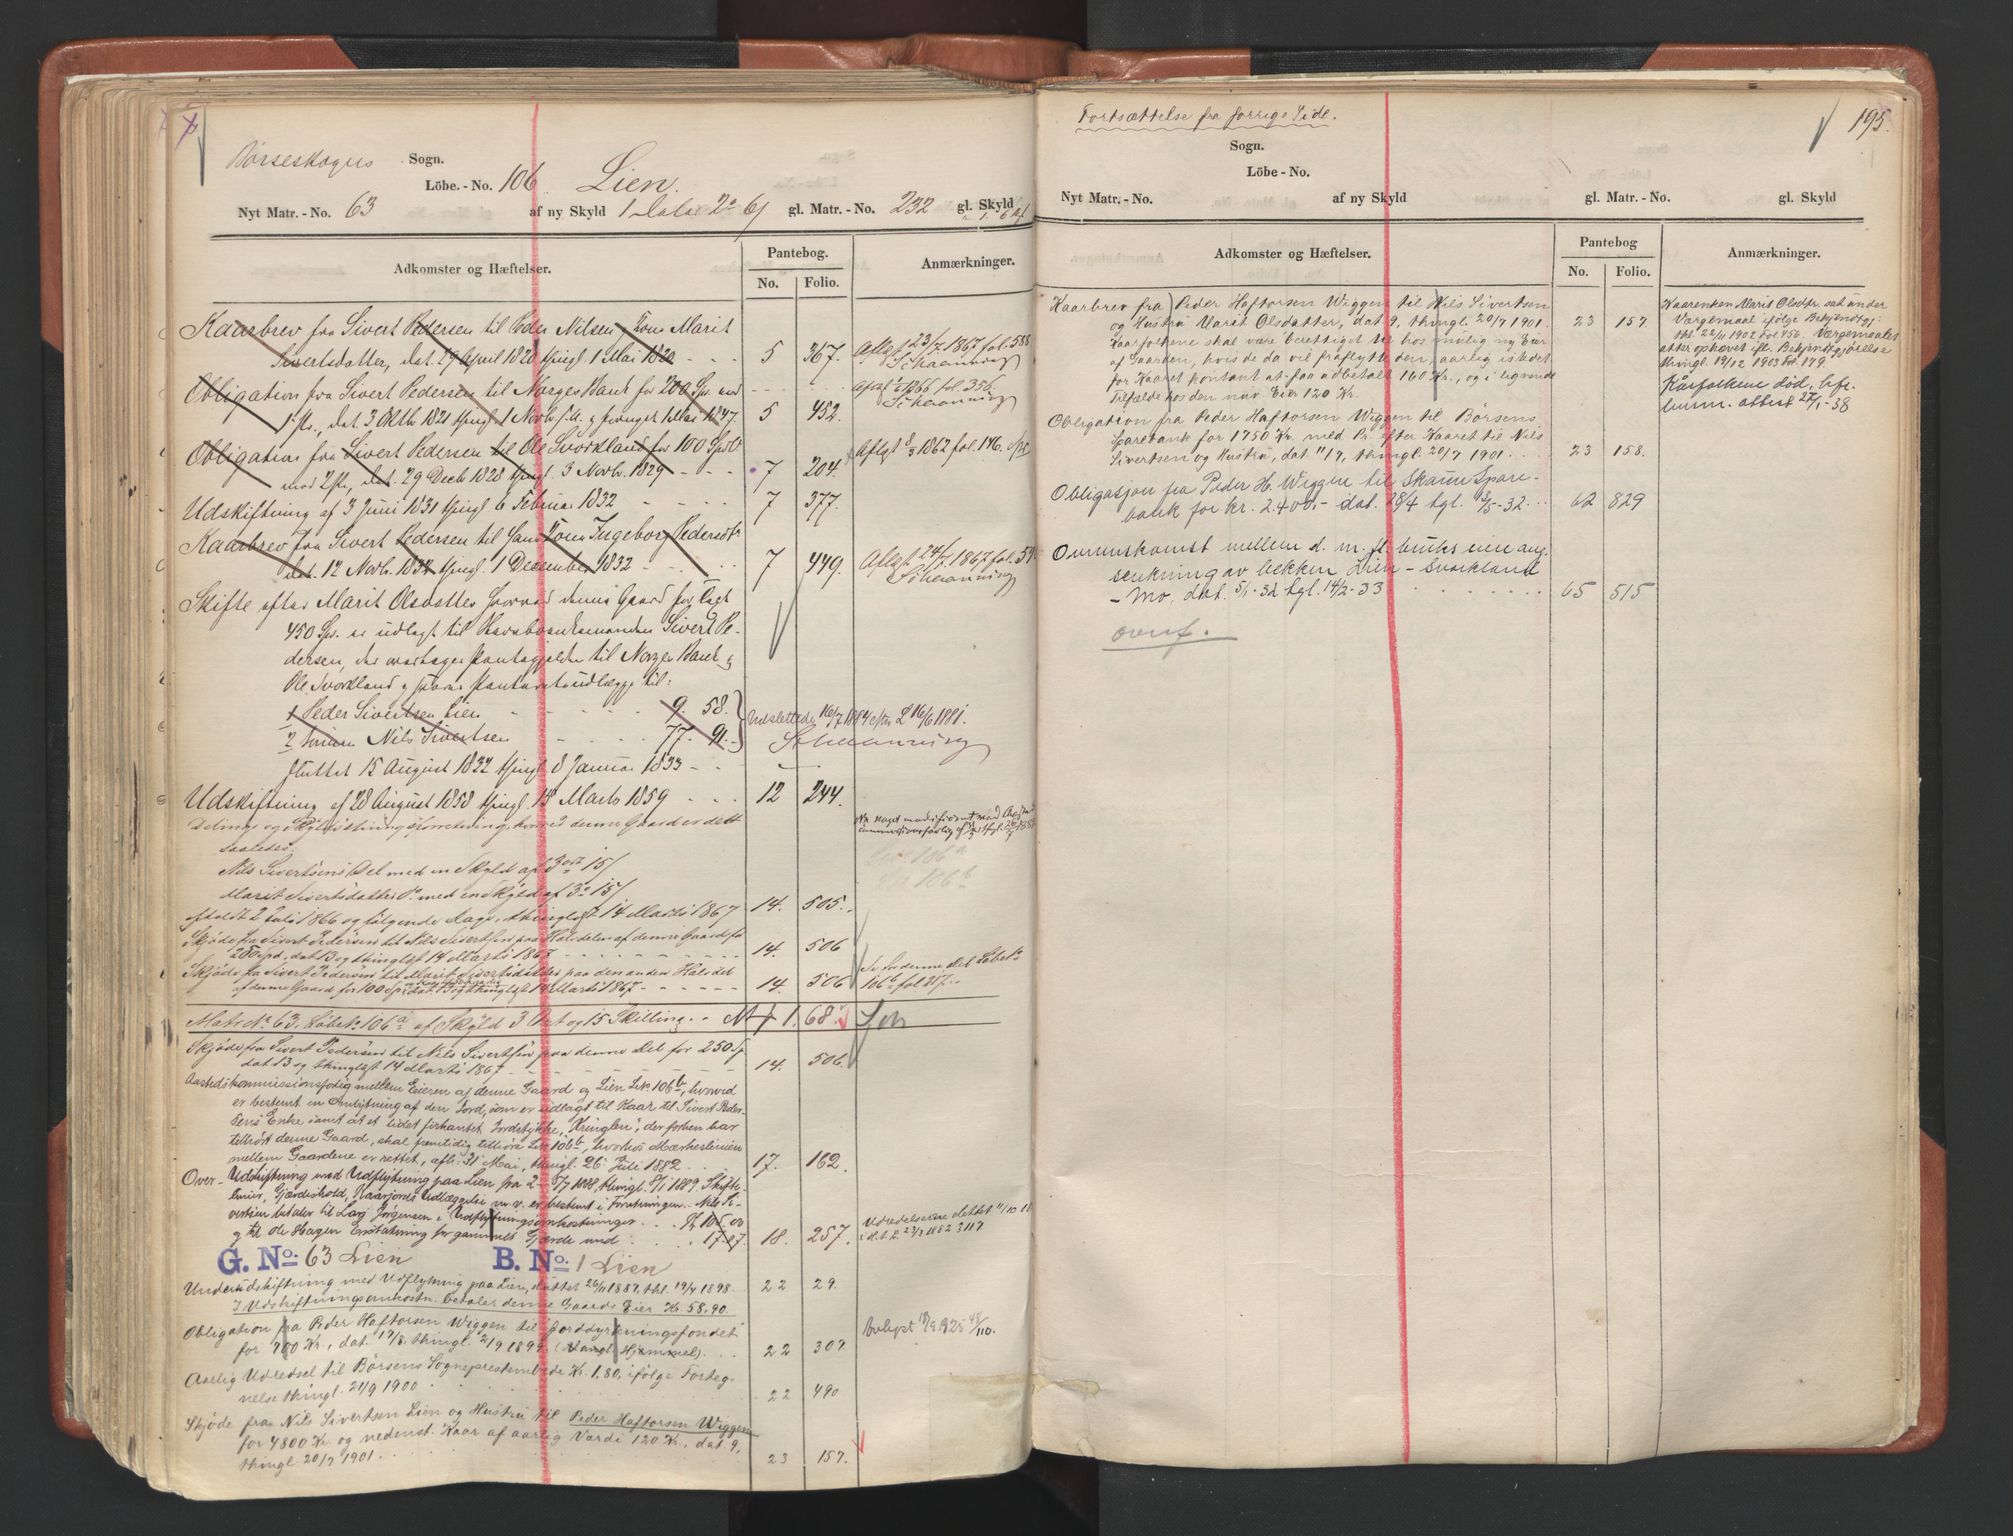 Børseskogns Sogn.
Löbe.-No. 106 Lien.
Nyt Matr.-No. 63 af ny Skyld 1 Daler 2 ort 6 gl. Matr.-No. 232 gl. Skyld
Adkomster og Hæftelser. Pantebog. No. Folio. Anmærkninger.
Kaarbrev fra Sivert Pedersen til Peder Nilsen Kone Marit
Sivertsdatter, dat. 29 April 1820 thingl. 1 Mai 1820 5 367. Aflyst 23/7 1867 fol. 588
Schaanning
Obligation fra Sivert Pedersen til Norges Bank for 200 Spd mod
1 Pr., dat. 3 Oktbr 1821 thingl. 1 Novb. 5 452. Aflyst 1866 fol. 356.
Schaanning
Obligation fra Sivert Pedersen til Ole Svorkland for 100 Spd
mod 2 Pr, dat. 29 Decb 1828 thingl. 3 Novbr. 1829 7 204. Aflyst 1862 fol. 146.
Udskiftning af 3 Juni 1831 thingl. 6 Februar 1832 7 377.
Kaarbrev fra Sivert Pedersen til Kone Ingeborg Pedersdtr
dat. 12 Novb. 1832 thingl. 1 December 1832 7 449. Aflyst 24/7 1867 fol. 59
Schaanning
Skifte efter Marit Olsdatter hvorved denne Gaard for Taxt
450 Spd. er udlagt til Enkemanden Sivert Pe-
dersen, der overtager Pantegjelden til Norges Bank og
Ole Svorkland og Panteretsudlægge til:
1 Peder Sivertsen Lien 9. 58.
2 Sønnen Nils Sivertsen 77. 91. Udslettede 16/7 1884 efter L 16/6 1881.
Schaanning
sluttet 15 August 1832 thingl. 8 Januar 1833
Udskiftning af 28 August 1858 thingl. 15 Marts 1859 12 244.
Delings og Skyldsætningsforretning, hvorved denne Gaard er delt
saaledes:
Nils Sivertsens Del med en Skyld af 3 ort 15 /
Marit Sivertsdatters Do. med en Skyld af 3 o 15 /
afholdt 2 Juli 1866 og følgende Dage, thinglæst 14 Marts 1867 14. 505.
Skjøde fra Sivert Pedersen til Nils Sivertsen paa Halvdelen af denne Gaard for
250 Spd, dat. 13 og thinglæst 14 Marts 1867 14. 506
Skjøde fra Sivert Pedersen til Marit Sivertsdatter paa den anden Halvdel
af denne Gaard for 100 Spd dat. 13 og thinglæst 14 Marts 1867 14. 506 Se for denne Del Løbeno
106 b fol. 217.
Matr No 63. Løbeno 106 a af Skyld 3 Ort og 15 Skilling. M 1. 68
Skjøde fra Sivert Pedersen til Nils Sivertsen paa denne Del for 250 Sp
dat 13 og thinglæst 14 Marts 1867 14. 506.
Aastedskommissionsforlig mellem Eieren af denne Gaard og Lien Lb. 106 b, hvorved
er bestemt en Ombytning af den Jord, som er udlagt til Kaar til Sivert Peder-
sens Enke samt at et lidet firkantet Jordstykke, "Kringlen", der forhen har
tilhørt denne Gaard, skal fremtidig tilhøre Lb. 106 b, hvorhos Mærkeslinien
mellem Gaardene er rettet, afh. 31 Mai, thingl. 26 Juli 1882. 17. 162.
Over-Udskiftning med Udflytning paa Lien fra 2-5/7 1888, thingl. 8/1 1889. Skifte-
linier, Gjerdeshold, Kaarjords Udlæggelse m. v. er bestemt i Forretningen. Nils Si-
vertsen betaler til Lars Jørgensen i Udflytningsomkostninger
og til Ole Hagen Erstatning for gammelt Gjerde med 17. 27. 18. 257. Udredelserne slettet 11/10
G. No. 63 Lien B. No. 1 Lien
Underudskiftning med Udflytning paa Lien, sluttet 26/7 1887, thl. 19/4 1898. 22 29.
I Udskiftningsomkostn. betaler denne Gaards Eier Kr. 58.90
Obligation fra Peder Haftorsen Wiggen til "Jorddyrkningsfondet"
for 700 Kr., dat. 17/8, thingl. 2/9 1899. (Mangl. Hjemmel). 22 307. Avlyst 17/9 1925 48/110.
Aarlig Udredsel til Børsens Sogneprestembede Kr. 1,80, ifølge Forteg-
nelse thingl. 21/9 1900 22 490
Skjøde fra Nils Sivertsen Lien og Hustru til Peder Haftorsen Wiggen
for 4800 Kr. og nedenst. Kaar af aarlig Værdi 120 Kr., dat. 9,
thingl 20/7 1901. 23 157.
Fortsættelse fra forrige Side.
195.
Sogn.
Löbe-No.
Nyt Matr.-No. af ny Skyld gl. Matr.-No. gl. Skyld
Adkomster og Hæftelser. Pantebog No. Folio. Anmærkninger.
Kaarbrev fra Peder Haftorsen Wiggen til Nils Sivertsen
og Hustru Marit Olsdatter, dat. 9, thingl. 20/7 1901. 23 157.
Kaarfolkene skal være berettiget til hos mulig ny Eier
af Gaarden, hvis de da vil fraflytte den, aarlig istedet
for Kaaret kontant at faa udbetalt 160 Kr., og i lignende
Tilfælde hos den nuv. Eier 120 Kr.
Kaarenken Marit Olsdtr. sat under
Værgemaal ifølge Bekjendtgj:
thl. 22/11 1902 Fol 456. Værgemaalet
atter ophævet ifl. Bekjendtgjørelse
thingl. 19/12 1903 Fol. 179.
Kårfolkene død, ifc.
humm. attest 27/1-38
Obligation fra Peder Haftorsen Wiggen til Børsens
Sparebank for 1750 Kr. med Pr. efter Kaaret til Nils
Sivertsen og Hustru, dat. 11/7, thingl. 20/7 1901. 23 158.
Obligasjon fra Peder H. Wiggen til Skaun Spare-
bank for kr. 2.400,- dat. 28/4 tgl. 2/5-32. 62 829
Overenskomst mellem d. m. fl. bruks eiere ang.
senkning av bekken Lien - Svorkland
- Mo, dat. 5/1-32 tgl. 14/2-33 65 515
overf.